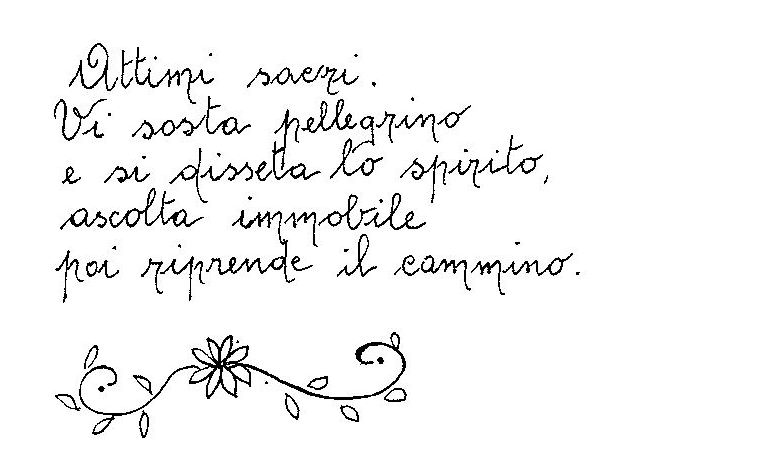 Attimi sacri.
Vi sosta pellegrino
e si disseta lo spirito,
ascolta immobile
poi riprende il cammino.